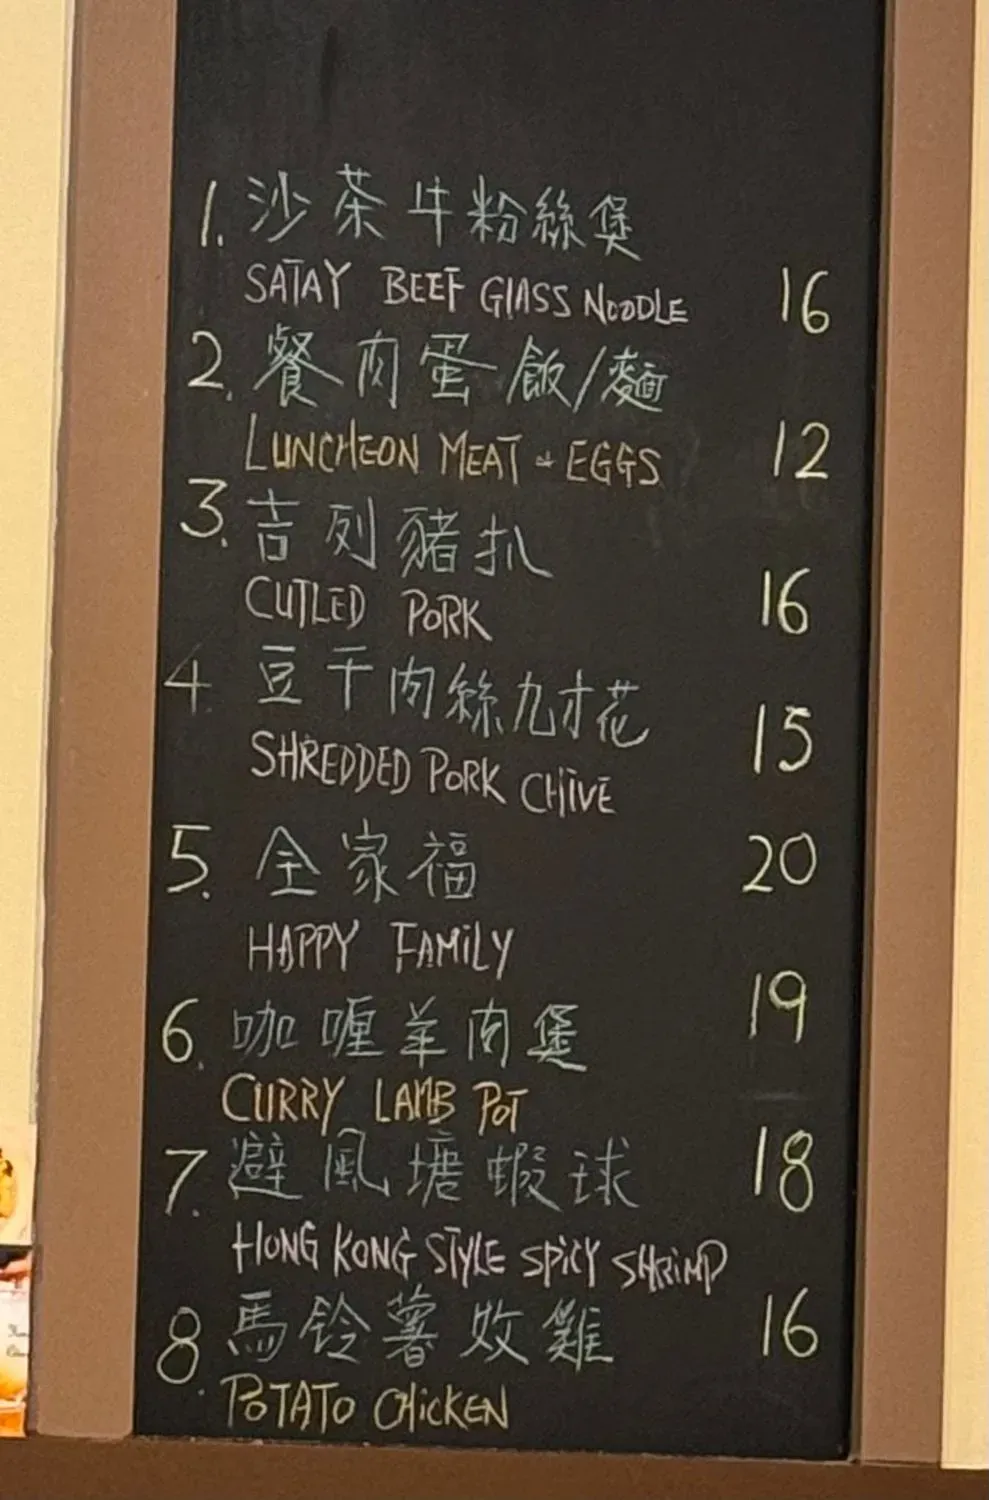 1. 沙茶牛粉絲煲
SATAY BEEF GLASS NOODLE 16
2. 餐肉蛋飯/麵
LUNCHEON MEAT & EGGS 12
3. 吉列豬扒
CUTLED PORK 16
4 豆干肉絲九才花
SHREDDED PORK CHIVE 15
5. 全家福 20
HAPPY FAMILY
6. 咖喱羊肉煲 19
CURRY LAMB POT
7. 避風塘蝦球 18
HONG KONG STYLE SPICY SHRIMP
8. 馬鈴薯炆雞 16
POTATO CHICKEN